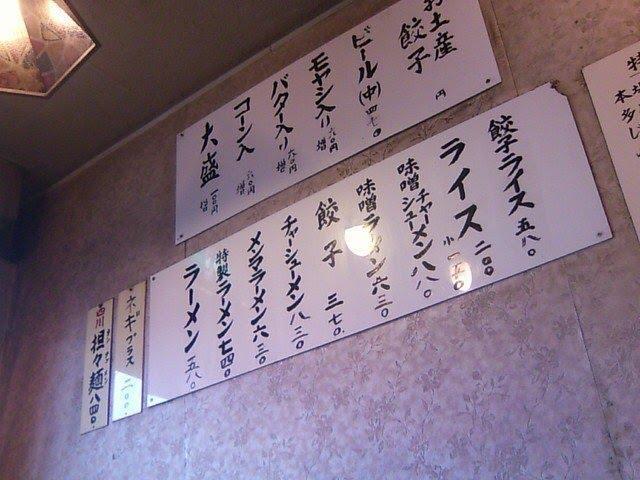 お土産
餃子
円
ビール(中)四七〇
モヤシ入り 六〇円増
バター入り 六〇円増
コーン入 六〇円増
大盛 一〇〇円増
餃子ライス 五八〇
ライス 二〇〇
小 一五〇
味噌チャーシューメン 八八〇
味噌ラーメン 六三〇
餃子 三七〇
チャーシューメン 八三〇
メンマラーメン 六三〇
特製ラーメン 七四〇
ラーメン 五八〇
ネギプラス 二〇〇
四川
担々麺 八四〇
タンタンメン